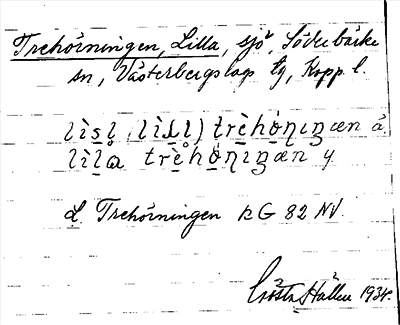 Trehörningen, Lilla, sjö, Söderbärke
sn, Västerbergslags tg, Kopp. l.
lìsḷ (lìsḷḷ) trèhöṇiŋæn å
lìla trèhöṇiŋæn y
L. Trehörningen RG 82 NV.
Gösta Hallen 1934.